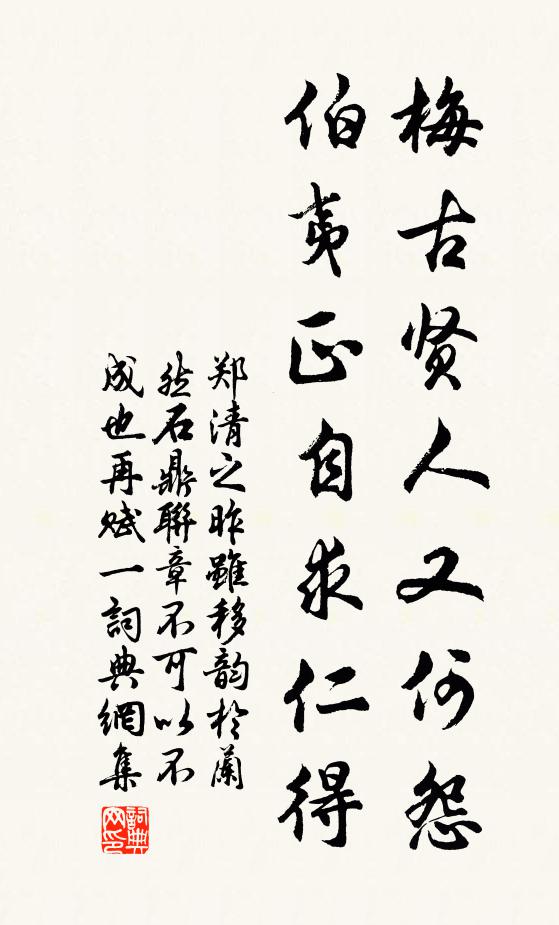 梅古贤人又何怨
伯夷正自求仁得
郑清之昨雖移韵於蘭
然石鼎聯章不可以不
成也再赋一詞典網集
詞典网印